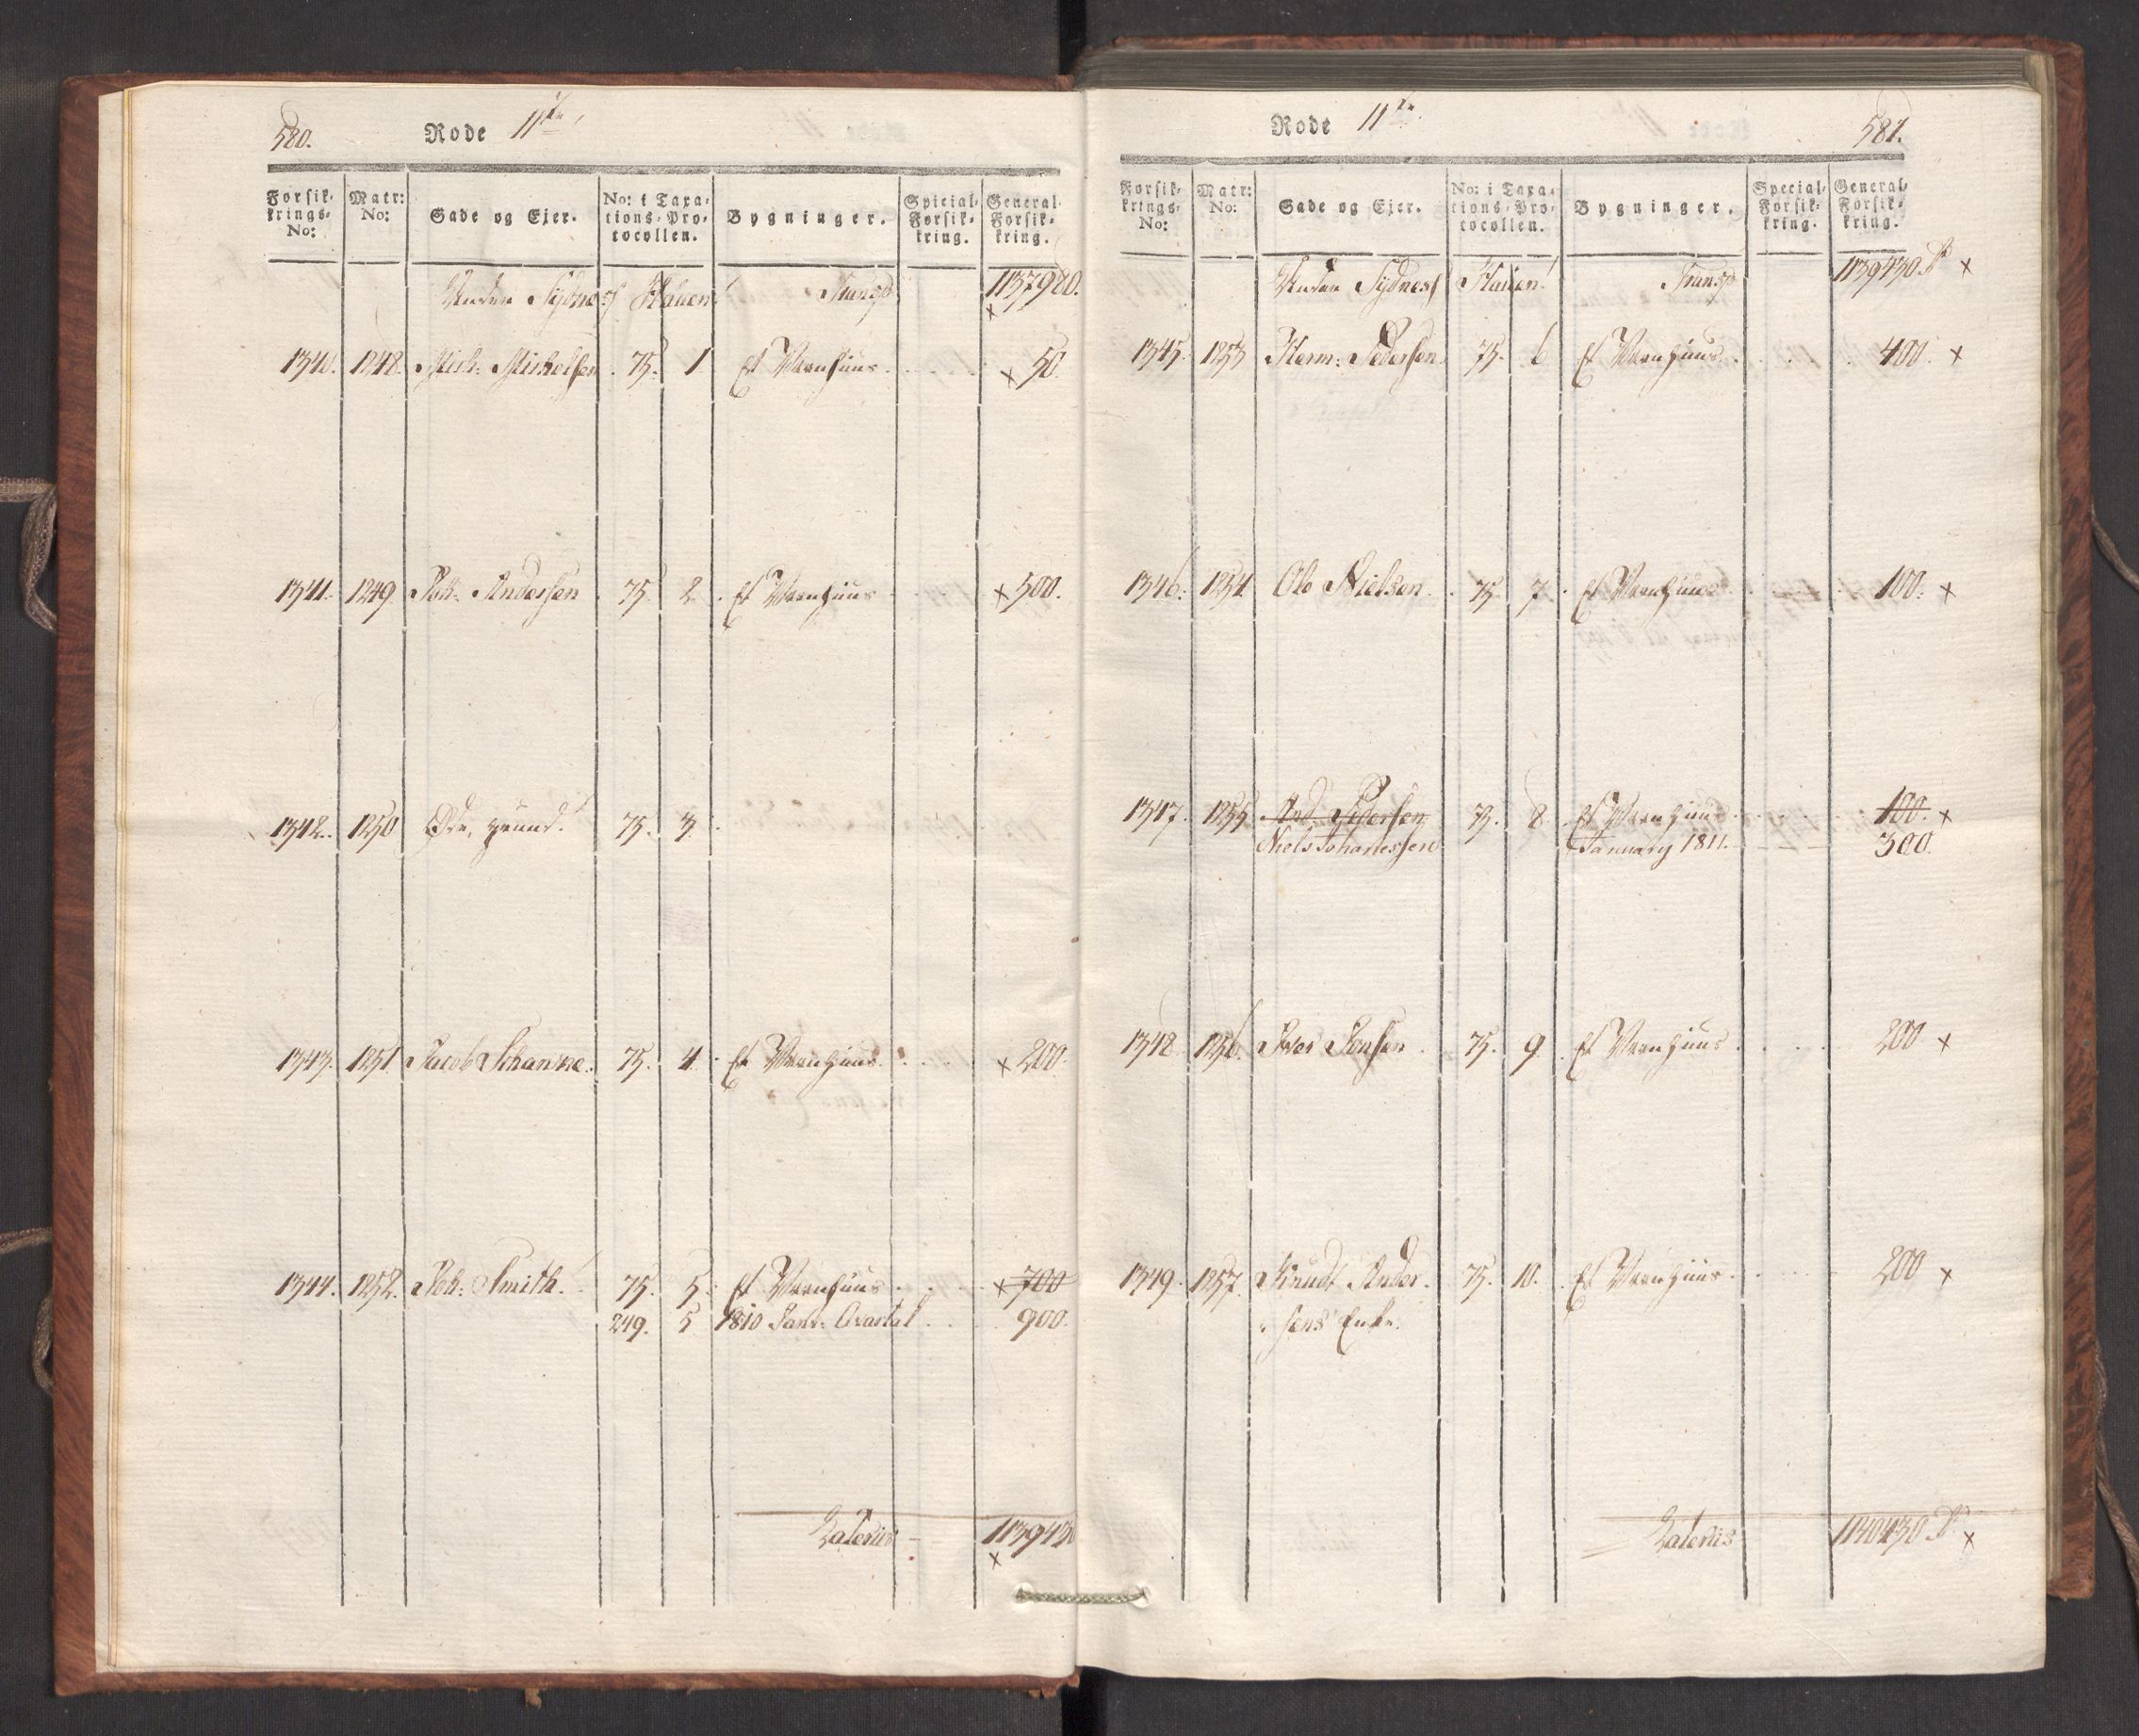 580. Rode 11te
Forsikkrings-No: Matr: No: Gade og Ejer. No: i Taxations-Protocollen. Bygninger. Spicial-Forsikkring. General-Forsikkring.
Under Sydness Hauen Transp 1137980.
1340. 1248. Mich: Michelsen 75. 1 Et Vaanhuus x 50.
1341. 1249 Joh: Andersen 75 2 Et Vaanhuus x 500.
1342. 1250 Øde, grund. 75. 3.
1343. 1251 Jacob Schanke. 75. 4. Et Vaanhuus x 200.
1344. 1252. Joh: Smith. 75. 5. Et Vaanhuus x 700
249. 5 1810 Janr: Qvartal 900.
Lateris 113943
x
Rode 11te 581.
Forsikkrings-No: Matr: No: Gade og Ejer. No: i Taxations-Protocollen. Bygninger. Special-Forsikkring. General-Forsikkring.
Under Sydness Hauen Transp 1139430 x
1345. 1253 Herm: Pedersen 75. 6 Et Vaanhuus 400. x
1346. 1254 Ole Nielsen 75. 7. Et Vaanhuus 100. x
1347. 1255 And Pedersen 75. 8. Et Vaanhuus 100. x
Niels Johanessen January 1811. 300.
1348 1256. Iver Jonsen 75. 9. Et Vaanhuus 200 x
1349. 1257. Knudt Ander- 75. 10. Et Vaanhuus 200 x
sens Enke.
Lateris 1140430 x